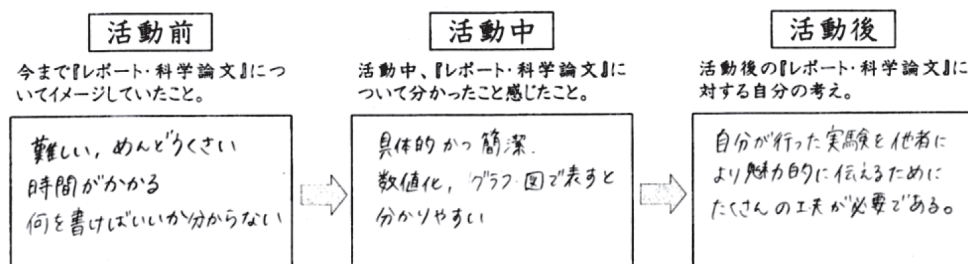 活動前
今まで『レポート・科学論文』につ
いてイメージしていたこと。
難しい, めんどうくさい
時間がかかる
何を書けばいいか分からない
活動中
活動中、『レポート・科学論文』に
ついて分かったこと感じたこと。
具体的かつ簡潔.
数値化, グラフ 図で表すと
分かりやすい
活動後
活動後の『レポート・科学論文』に
対する自分の考え。
自分が行った実験を他者に
より魅力的に伝えるために
たくさんの工夫が必要である。